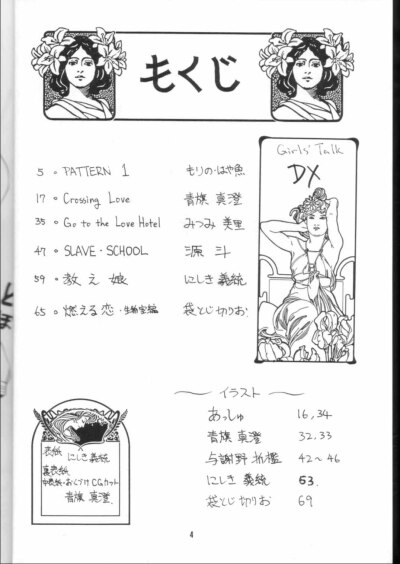 もくじ
Girls' Talk
DX
5 ・ PATTERN 1 もりの・はや魚
17 ・ Crossing Love 青旗 真澄
35 ・ Go to the Love Hotel みつみ 美里
47 ・ SLAVE・SCHOOL 源 斗
59 ・ 教え娘 にしき 義統
65 ・ 燃える恋・生物室編 袋とじ切りお
～ イラスト ～
あっしゅ 16,34
青旗 真澄 32,33
与謝野 折檻 42～46
にしき 義統 63.
袋とじ切りお 69
表紙 にしき義統
裏表紙
中表紙・おくづけ CGカット
青旗 真澄.
4